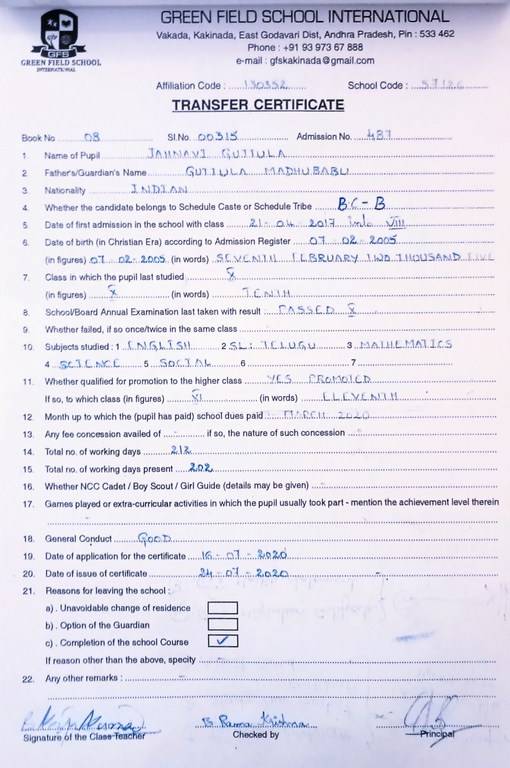 GREEN FIELD SCHOOL INTERNATIONAL
Vakada, Kakinada, East Godavari Dist, Andhra Pradesh, Pin : 533 462
Phone : +91 93 973 67 888
e-mail : gfskakinada@gmail.com
GFS
GREEN FIELD SCHOOL
INTERNATIONAL
Affiliation Code : 130352 School Code : 57126
TRANSFER CERTIFICATE
Book No 08 Sl.No. 00315 Admission No. 487
1. Name of Pupil JAHNAVI GUTTULA
2. Father's/Guardian's Name GUTTULA MADHUBABU
3. Nationality INDIAN
4. Whether the candidate belongs to Schedule Caste or Schedule Tribe BC-B
5. Date of first admission in the school with class 21-04-2017 into VIII
6. Date of birth (in Christian Era) according to Admission Register 07 02-2005
(in figures) 07 02-2005 (in words) SEVENTH FEBRUARY TWO THOUSAND FIVE
7. Class in which the pupil last studied X
(in figures) X (in words) TENTH
8. School/Board Annual Examination last taken with result PASSED X
9. Whether failed, if so once/twice in the same class
10. Subjects studied : 1 ENGLISH 2 SL: TELUGU 3 MATHEMATICS
4 SCIENCE 5 SOCIAL 6 7
11. Whether qualified for promotion to the higher class YES PROMOTED
If so, to which class (in figures) XI (in words) ELEVENTH
12. Month up to which the (pupil has paid) school dues paid MARCH 2020
13. Any fee concession availed of if so, the nature of such concession
14. Total no. of working days 212
15. Total no. of working days present 202
16. Whether NCC Cadet / Boy Scout / Girl Guide (details may be given)
17. Games played or extra-curricular activities in which the pupil usually took part - mention the achievement level therein
18. General Conduct GOOD
19. Date of application for the certificate 16-07-2020
20. Date of issue of certificate 24-07-2020
21. Reasons for leaving the school :
a) . Unavoidable change of residence
b) . Option of the Guardian
c) . Completion of the school Course ✓
If reason other than the above, specify
22. Any other remarks :
B Rama Krishna
Signature of the Class Teacher Checked by Principal